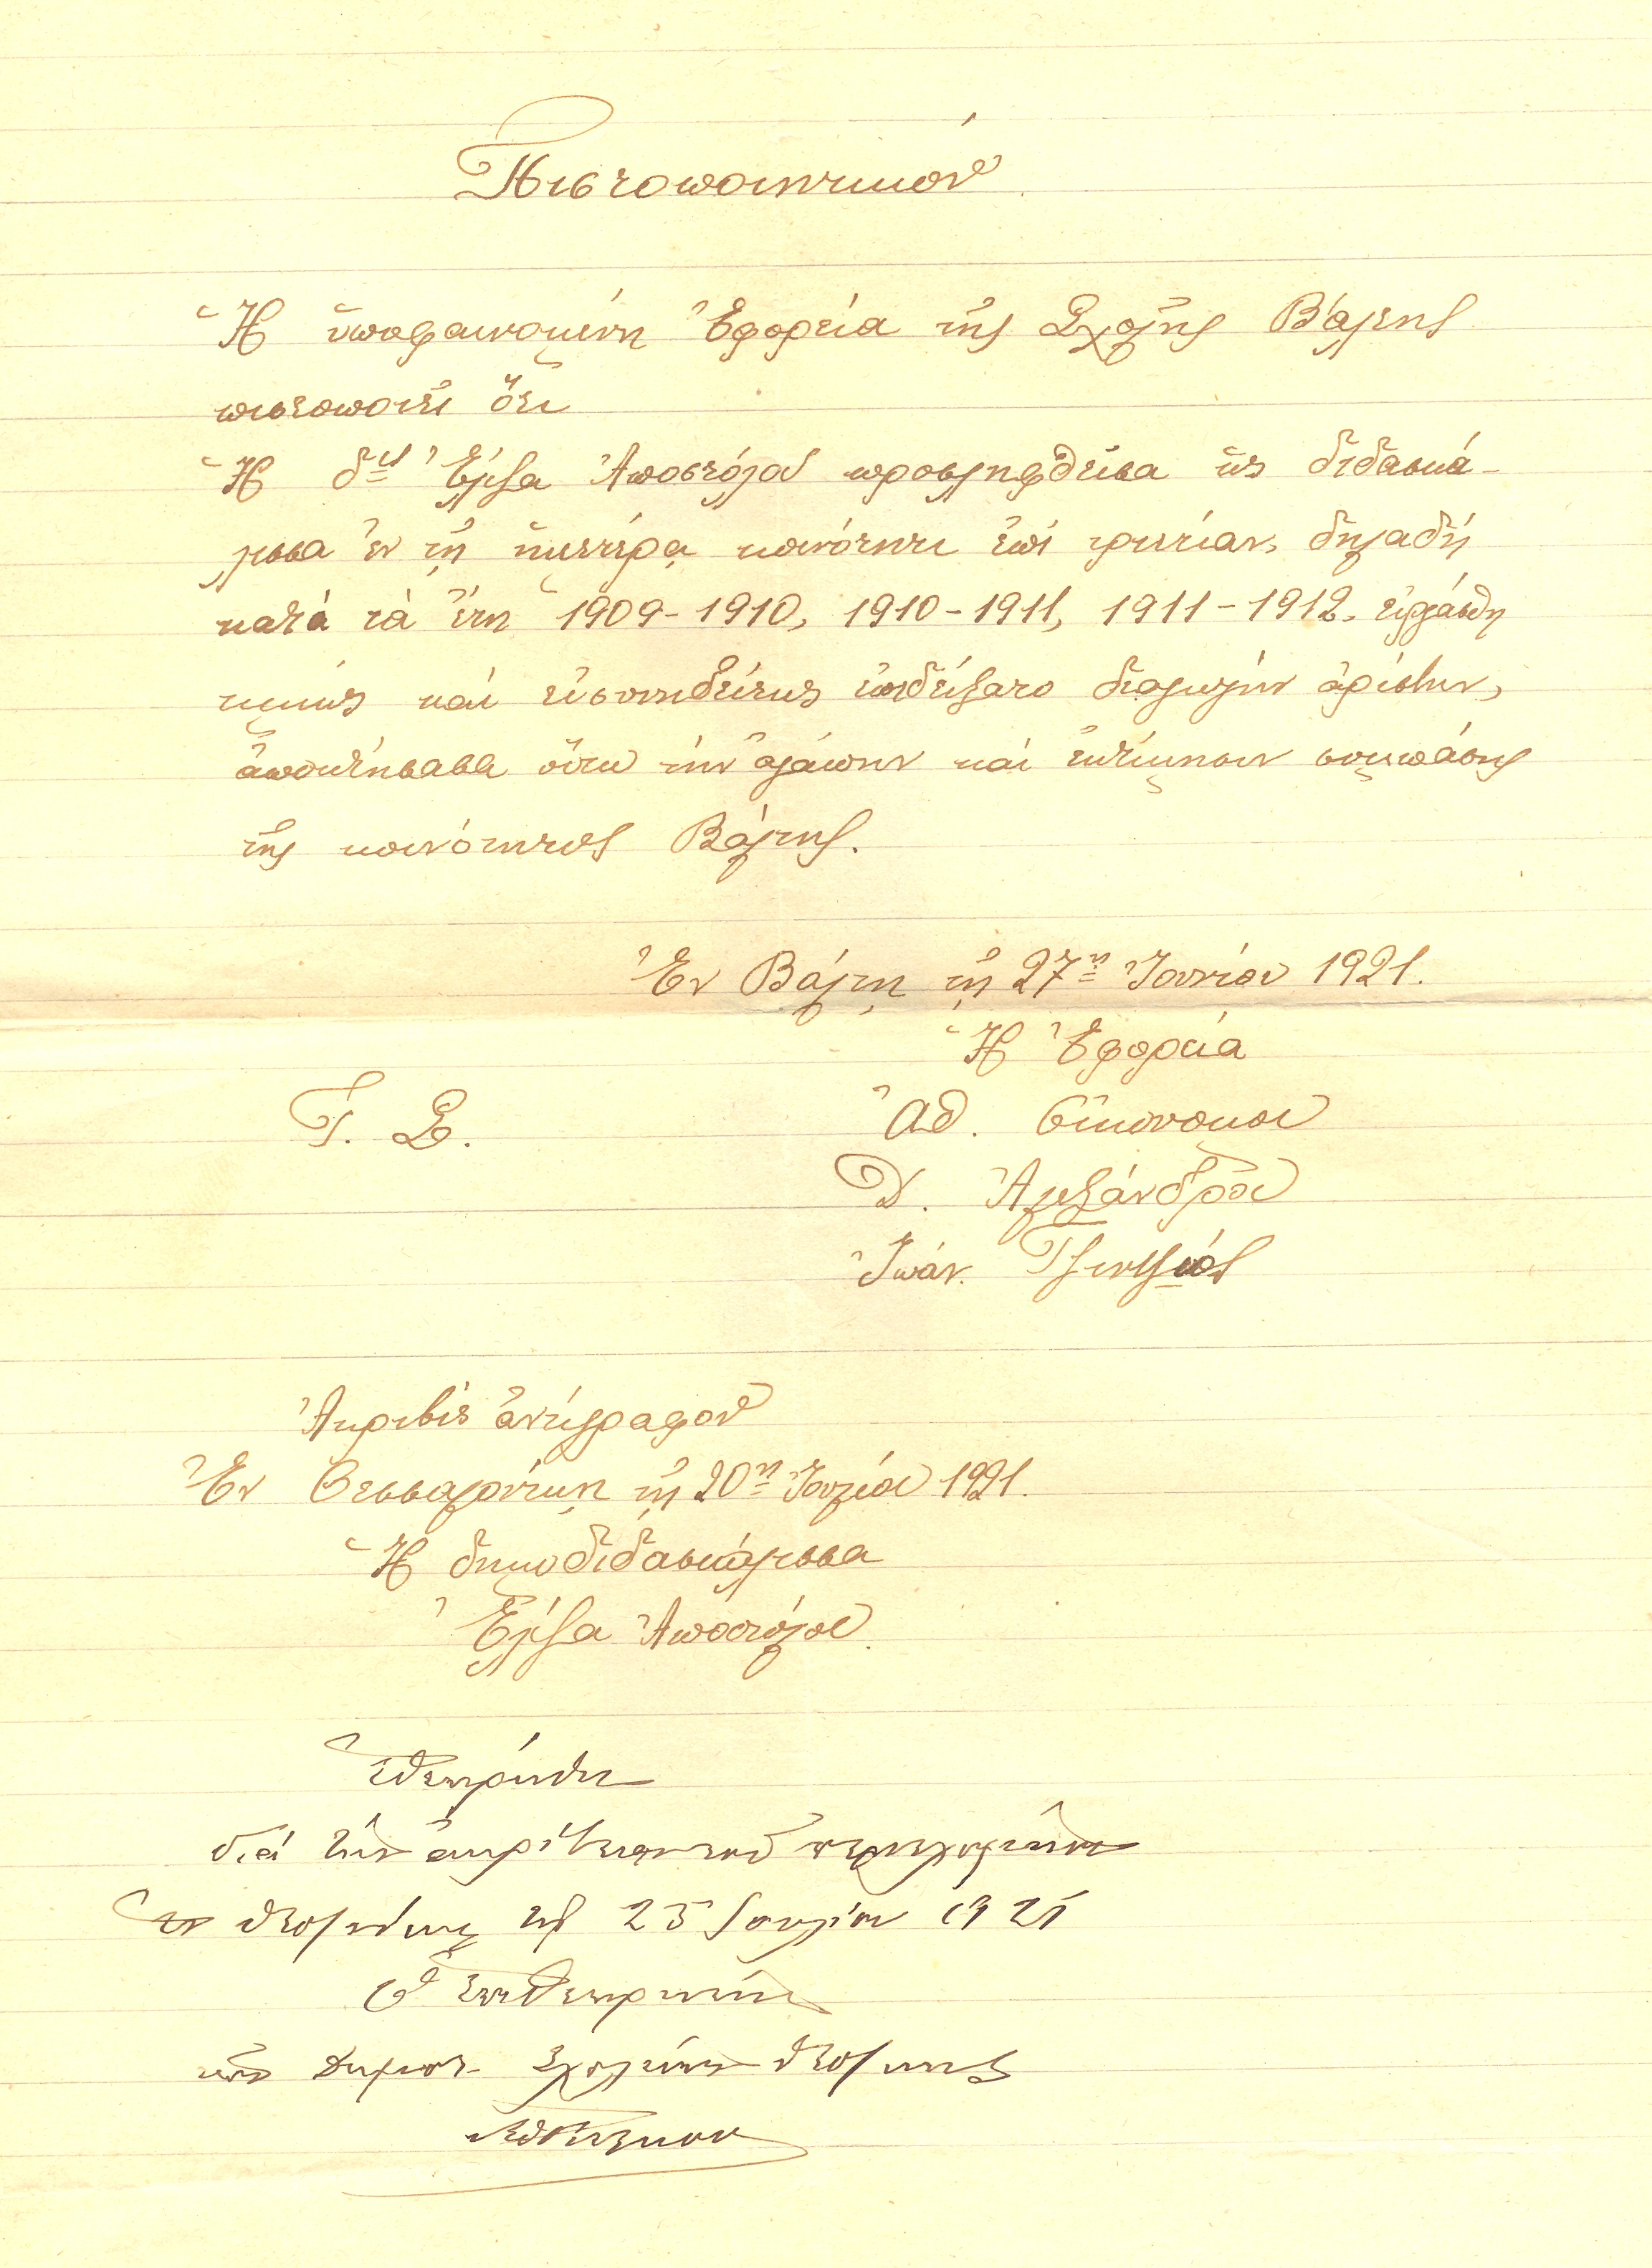 Πιστοποιητικόν
Ἡ ὑποφαινομένη Ἐφορεία τῆς Σχολῆς Βάλτης
πιστοποιεῖ ὅτι
Ἡ δὶς Ἐλίζα Ἀποστόλου προσληφθεῖσα ὡς διδασκά-
λισσα ἐν τῇ ἡμετέρᾳ κοινότητι ἐπὶ τριετίαν, δηλαδὴ
κατὰ τὰ ἔτη 1909-1910, 1910-1911, 1911-1912. εἰργάσθη
τιμίως καὶ εὐσυνειδήτως ἐπιδείξατο διαγωγὴν ἀρίστην,
ἀποκτήσασα οὕτω τὴν ἀγάπην καὶ ἐκτίμησιν συμπάσης
τῆς κοινότητος Βάλτης.
Ἐν Βάλτῃ τῇ 27ῃ Ἰουνίου 1921.
Ἡ Ἐφορεία
Τ. Σ.
Ἀθ. Οἰκονόμου
Δ. Ἀλεξάνδρου
Ἰωάν.
Ἀκριβὲς ἀντίγραφον
Ἐν Θεσσαλονίκῃ τῇ 20ῃ Ἰουλίου 1921.
Ἡ δημοδιδασκάλισσα
Ἐλίζα Ἀποστόλου
Ἐθεωρήθη
διὰ τὴν ἀκρίβειαν τοῦ περιεχομένου
Ἐν Θεσ/νίκῃ τῇ 25 Ἰουλίου 1921
Ὁ Ἐπιθεωρητὴς
τῶν Δημοτ. Σχολείων Θεσ/κης